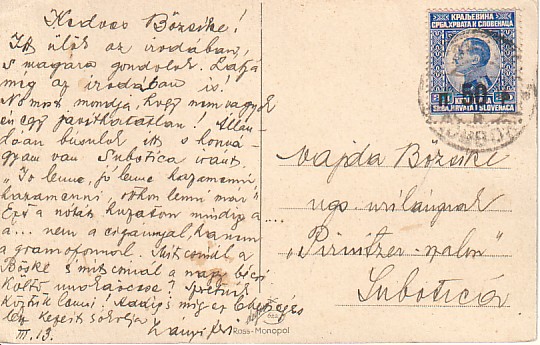 Kedves Bözsike!
Itt ülök az irodában,
s magára gondolok. Látja
még az irodában is!
No most mondja, hogy nem vagyok
én egy javíthatatlan! Állan-
dóan búsulok itt s honvá-
gyam van Subotica iránt.
"Jó lenne, jó lenne hazamenni
hazamenni, otthon lenni már"
Ezt a nótát huzatom mindig a
a... nem a cigánnyal, hanem
a gramofonnal. Mit csinál a
Böske s mit csinál a nagy bécsi
költő unokaöccse? Szeretnék
köztük lenni! Addig is míg ez
kezeit csókolja
III. 13.
КРАЉЕВИНА
СРБА, ХРВАТА И СЛОВЕНАЦА
П 50 P
SRBA, HRVATA I SLOVENACA
Vajda Bözsike
úgs. úrileánynak
"Pirnitzer-palon"
Subotica
Ross-Monopol